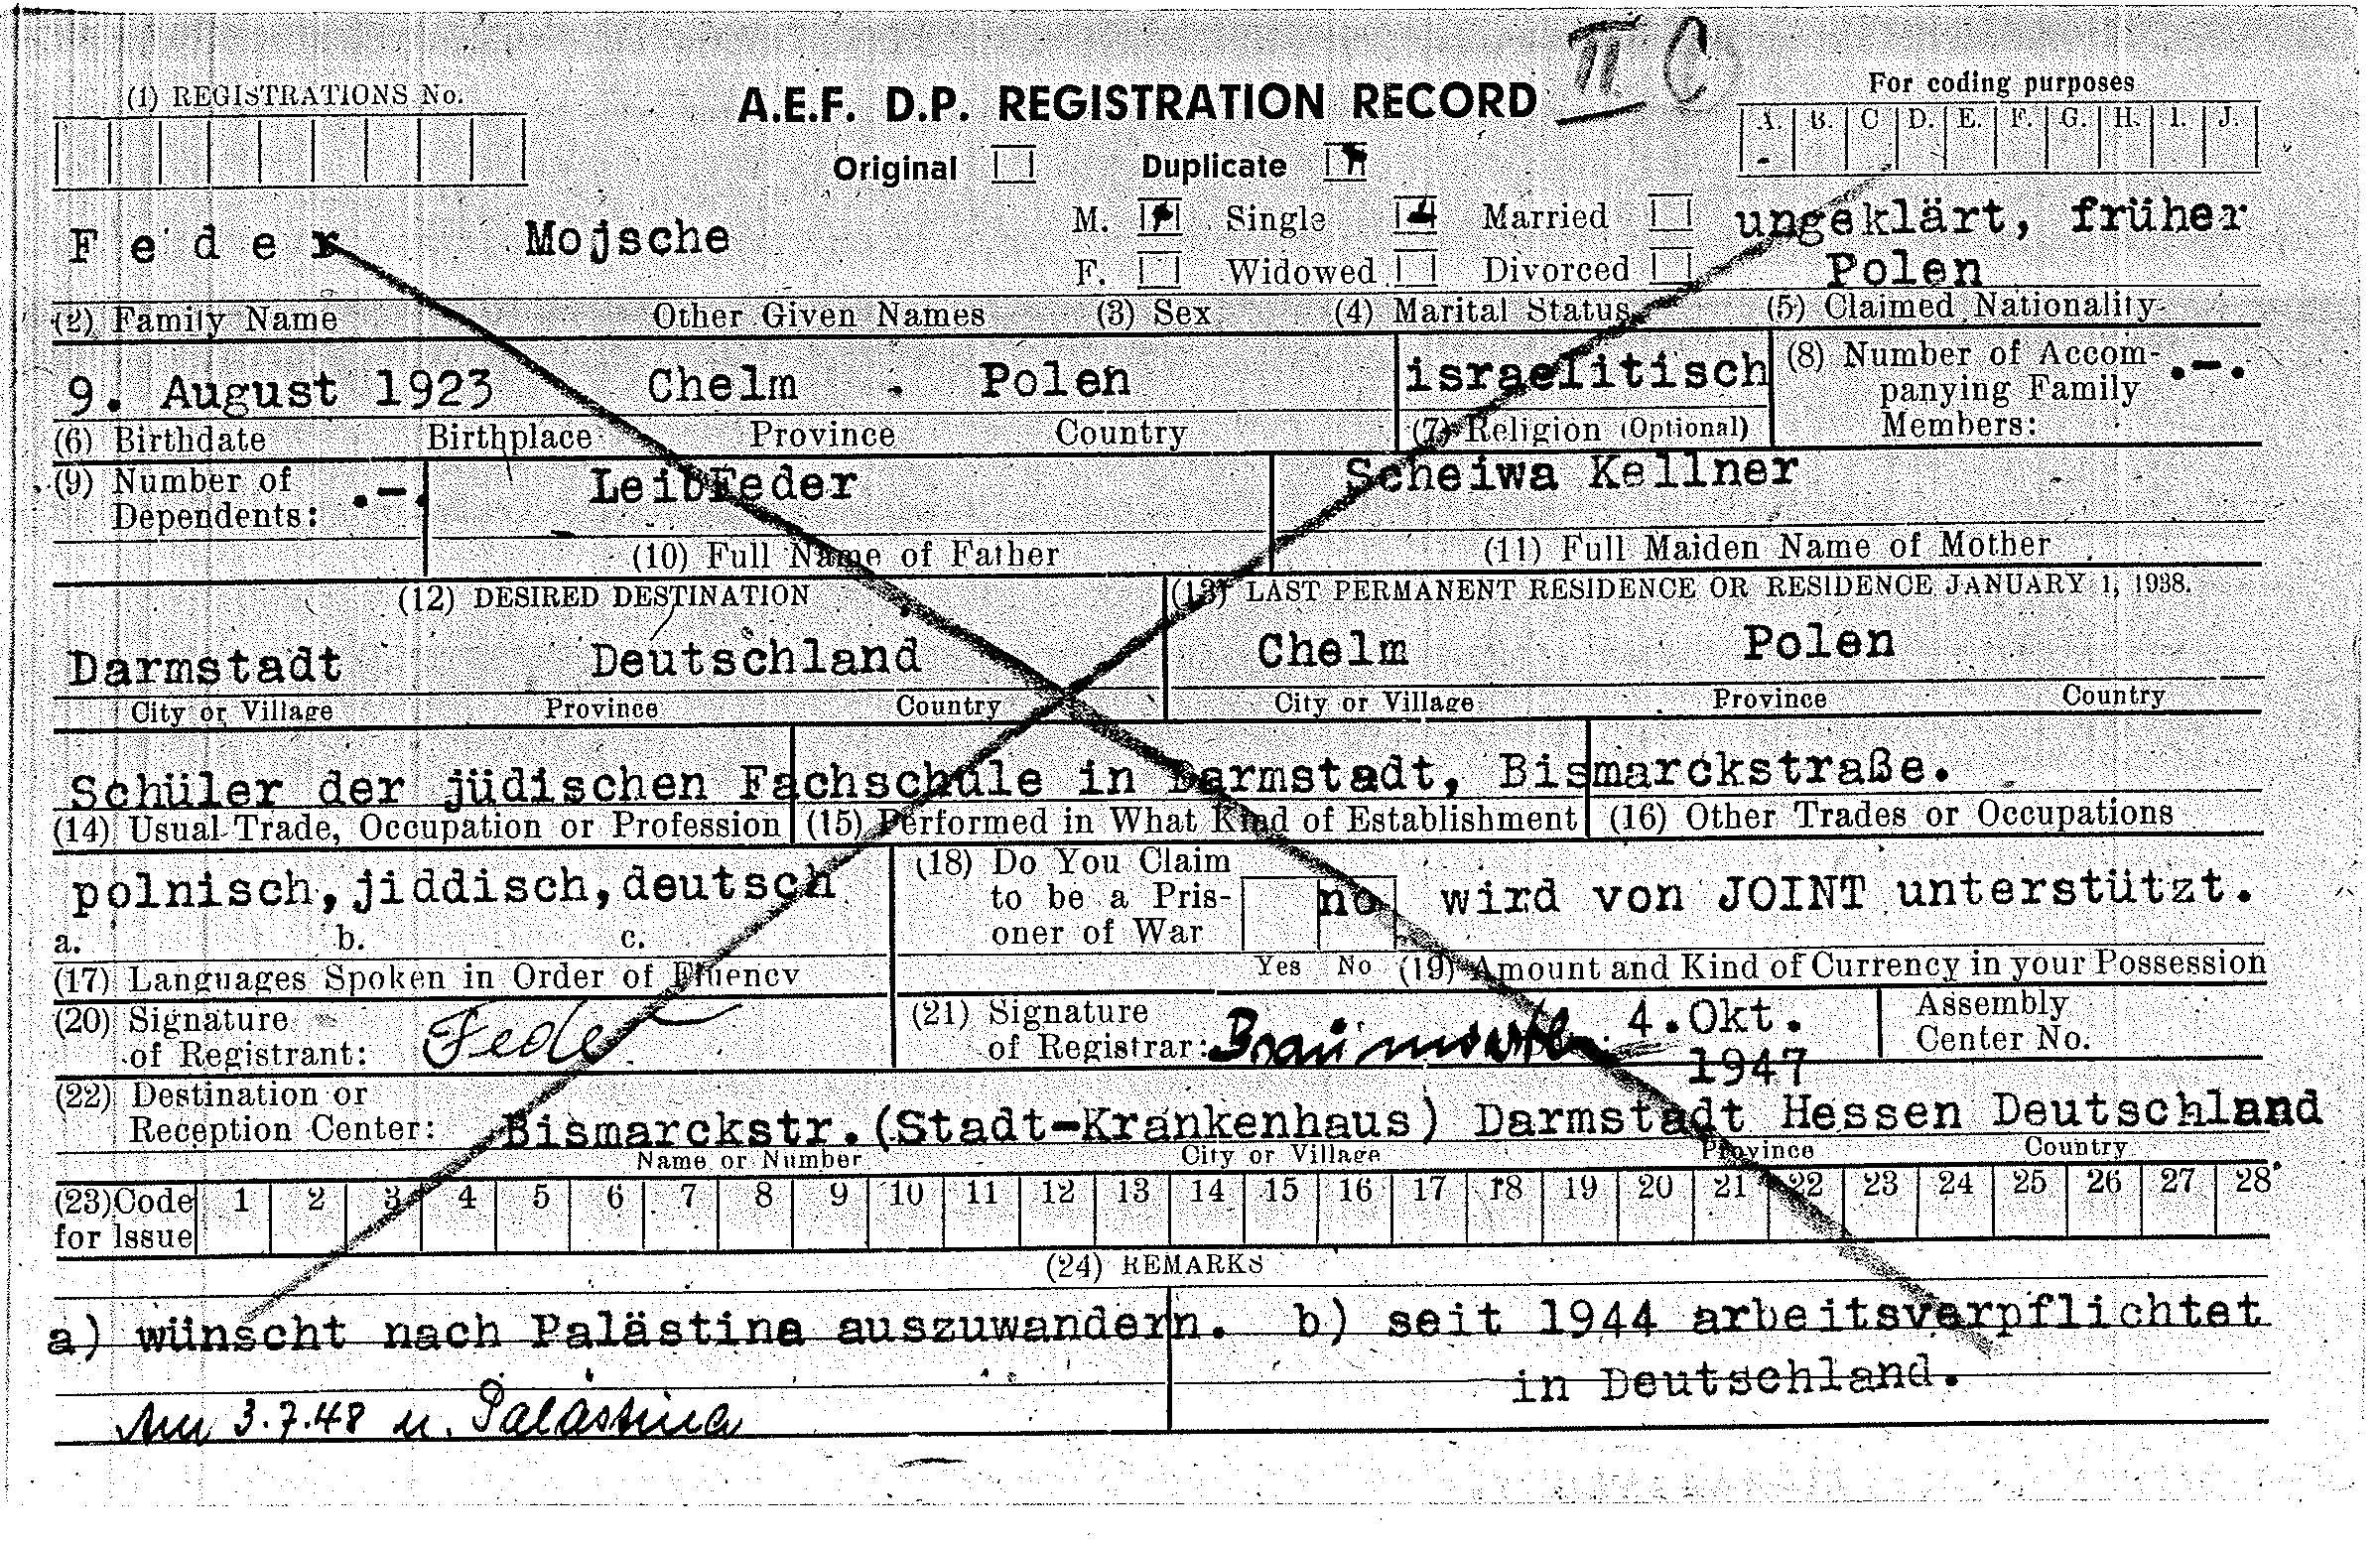 II C
(1) REGISTRATIONS No.
A.E.F. D.P. REGISTRATION RECORD
For coding purposes
A. B. C D. E. F. G. H. I. J.
Original Duplicate
F e d e r Mojsche
M. Single Married
ungeklärt, früher
F. Widowed Divorced
Polen
(2) Family Name Other Given Names (3) Sex (4) Marital Status (5) Claimed Nationality
9. August 1923 Chelm . Polen
israelitisch
(8) Number of Accompanying Family Members: .-.
(6) Birthdate Birthplace Province Country (7) Religion (Optional)
(9) Number of Dependents: .-.
LeibFeder
Scheiwa Kellner
(10) Full Name of Father (11) Full Maiden Name of Mother
(12) DESIRED DESTINATION (13) LAST PERMANENT RESIDENCE OR RESIDENCE JANUARY 1, 1938.
Darmstadt Deutschland Chelm Polen
City or Village Province Country City or Village Province Country
Schüler der jüdischen Fachschule in Darmstadt, Bismarckstraße.
(14) Usual Trade, Occupation or Profession (15) Performed in What Kind of Establishment (16) Other Trades or Occupations
polnisch,jiddisch,deutsch
(18) Do You Claim to be a Prisoner of War
no wird von JOINT unterstützt.
a. b. c.
(17) Languages Spoken in Order of Fluency Yes No (19) Amount and Kind of Currency in your Possession
(20) Signature of Registrant: Feder
(21) Signature of Registrar:
4.Okt.
1947
Assembly Center No.
(22) Destination or Reception Center:
Bismarckstr.(Stadt-Krankenhaus) Darmstadt Hessen Deutschland
Name or Number City or Village Province Country
(23) Code for Issue 1 2 3 4 5 6 7 8 9 10 11 12 13 14 15 16 17 18 19 20 21 22 23 24 25 26 27 28
(24) REMARKS
a) wünscht nach Palästina auszuwandern. b) seit 1944 arbeitsverpflichtet
in Deutschland.
Am 3.7.48 n. Palästina